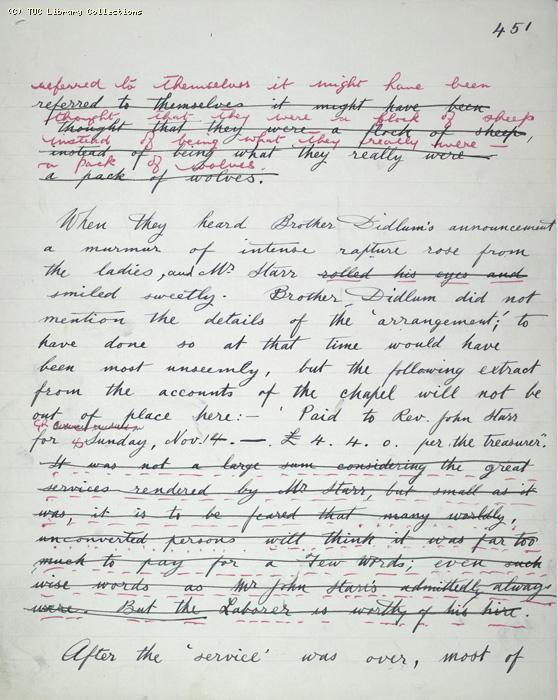 (C) TUC Library Collections
451
referred to themselves it might have been
referred to themselves it might have been
thought that they were a flock of sheep
thought that they were a flock of sheep,
instead of being what they really were –
instead of being what they really were –
a pack of wolves.
a pack of wolves.
When they heard Brother Didlum's announcement
a murmur of intense rapture rose from
the ladies, and Mr Starr rolled his eyes and
smiled sweetly. Brother Didlum did not
mention the details of the 'arrangement,' to
have done so at that time would have
been most unseemly, but the following extract
from the accounts of the chapel will not be
out of place here:– 'Paid to Rev. John Starr
for Sunday, Nov. 14. —. £4. 4. 0. per the treasurer".
It was not a large sum considering the great
services rendered by Mr Starr, but small as it
was, it is to be feared that many worldly,
unconverted persons will think it was far too
much to pay for a Few Words, even such
wise words as Mr John Starr's admittedly always
were. But the Laborer is worthy of his hire.
After the 'service' was over, most of